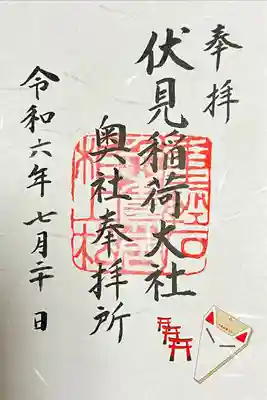 奉拝
伏見稲荷大社
奥社奉拝所
令和六年七月二十日